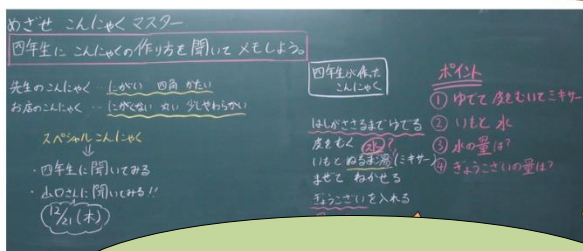 めざせ こんにゃく マスター
四年生に こんにゃくの作り方を聞いて メモしよう。
先生のこんにゃく… にがい 四角 かたい
お店のこんにゃく… にがくない 丸い 少しやわらかい
スペシャルこんにゃく
・四年生に聞いてみる
・山口さんに聞いてみる!!
12/21(木)
四年生が作った
こんにゃく
はしがささるまでゆでる
皮をむく 水?
いもと ぬるま湯(ミキサー)
まぜて ねかせる
ぎょうこざいを入れる
ポイント
① ゆでて 皮をむいてミキサー
② いもと 水
③ 水の量は?
④ ぎょうこざいの量は?